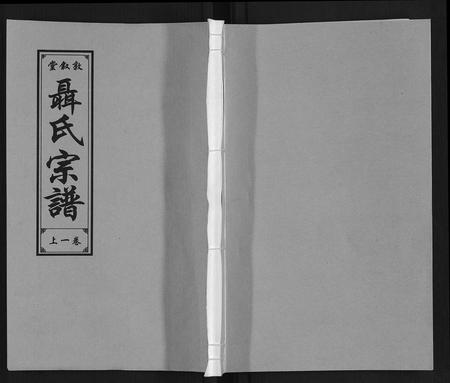 敦叙堂
聶氏宗譜
卷一上